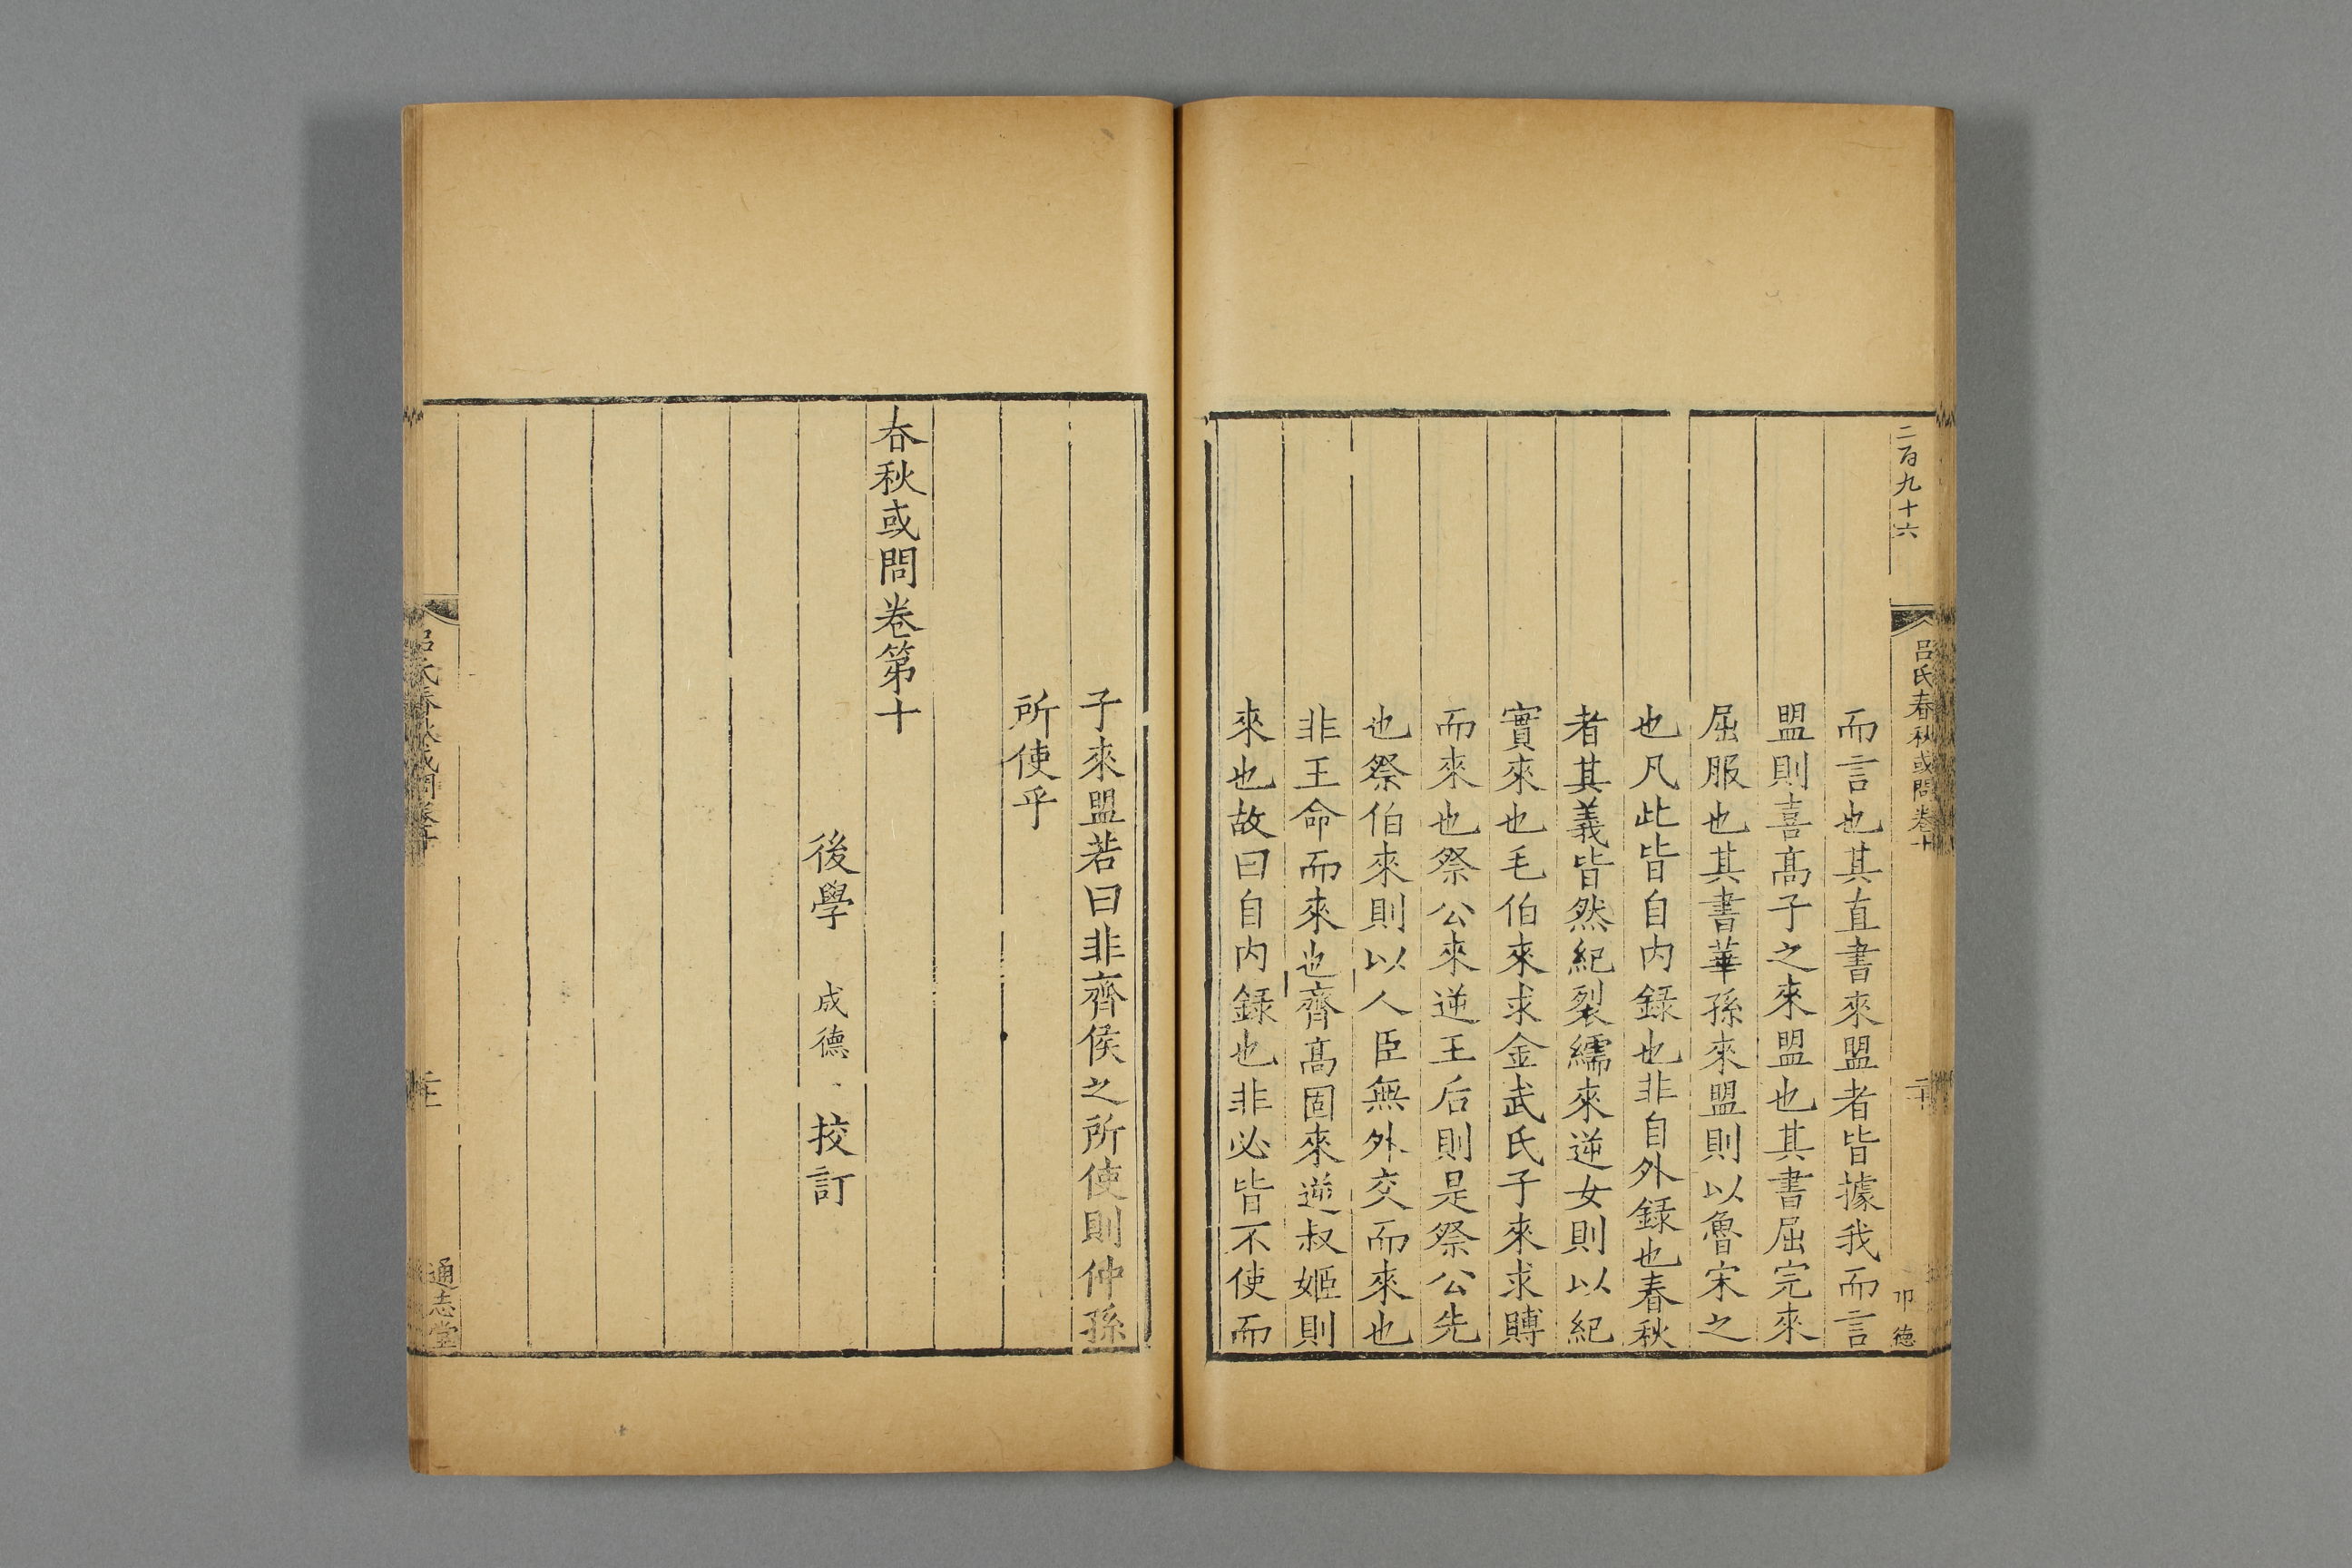 二百九十六
呂氏春秋或問卷十
二十
而言也其直書來盟者皆據我而言
盟則喜髙子之來盟也其書屈完來
屈服也其書華孫來盟則以魯宋之
也凡此皆自内録也非自外録也春秋
者其義皆然紀裂繻來逆女則以紀
實來也毛伯來求金武氏子來求賻
而來也祭公來逆王后則是祭公先
也祭伯來則以人臣無外交而來也
非王命而來也齊髙固來逆叔姬則
來也故曰自内録也非必皆不使而
子來盟若曰非齊侯之所使則仲孫
所使乎
春秋或問卷第十
後學 成德 挍訂
呂氏春秋或問卷十
通志堂